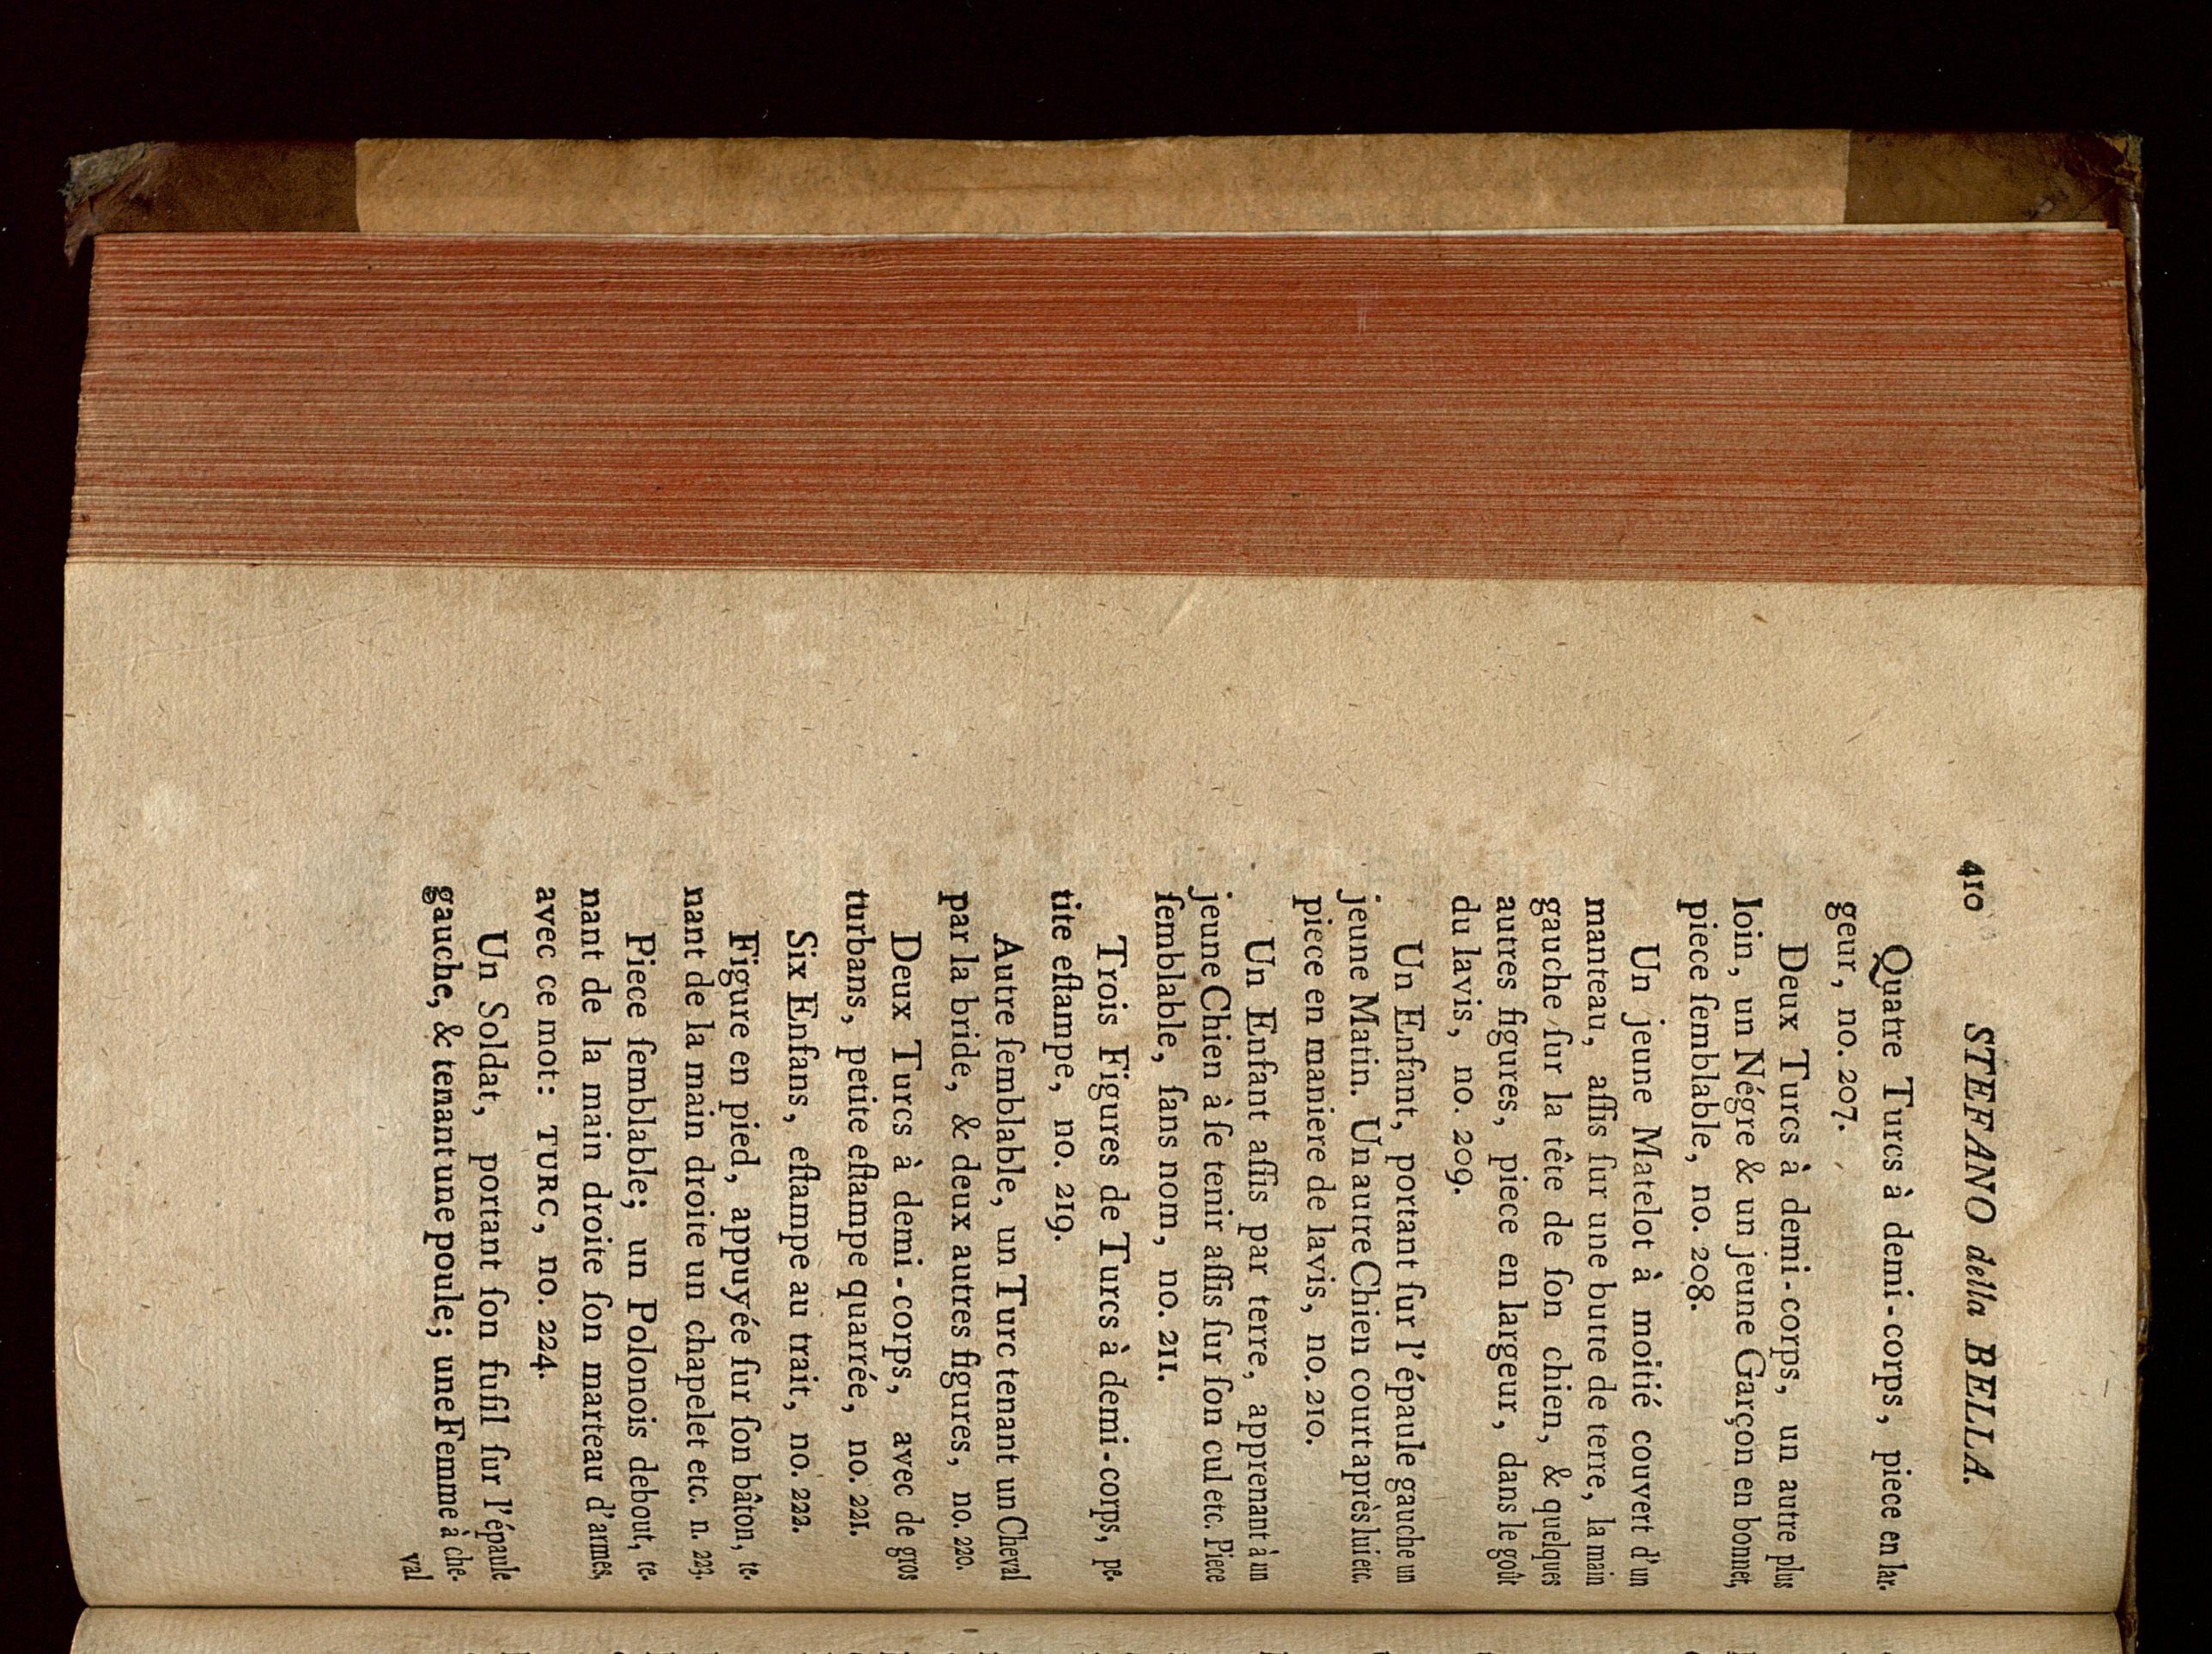 410 STEFANO della BELLA.
Quatre Turcs à demi-corps, piece en lar-
geur, no. 207.
Deux Turcs à demi-corps, un autre plus
loin, un Négre & un jeune Garçon en bonnet,
piece ſemblable, no. 208.
Un jeune Matelot à moitié couvert d'un
manteau, aſſis ſur une butte de terre, la main
gauche ſur la tête de ſon chien, & quelques
autres figures, piece en largeur, dans le goût
du lavis, no. 209.
Un Enfant, portant ſur l'épaule gauche un
jeune Matin. Un autre Chien court après lui etc.
piece en maniere de lavis, no. 210.
Un Enfant aſſis par terre, apprenant à un
jeune Chien à ſe tenir aſſis ſur ſon cul etc. Piece
ſemblable, ſans nom, no. 211.
Trois Figures de Turcs à demi-corps, pe-
tite eſtampe, no. 219.
Autre ſemblable, un Turc tenant un Cheval
par la bride, & deux autres figures, no. 220.
Deux Turcs à demi-corps, avec de gros
turbans, petite eſtampe quarrée, no. 221.
Six Enfans, eſtampe au trait, no. 222.
Figure en pied, appuyée ſur ſon bâton, te-
nant de la main droite un chapelet etc. n. 223.
Piece ſemblable; un Polonois debout, te-
nant de la main droite ſon marteau d'armes,
avec ce mot: TURC, no. 224.
Un Soldat, portant ſon fuſil ſur l'épaule
gauche, & tenant une poule; une Femme à che-
val